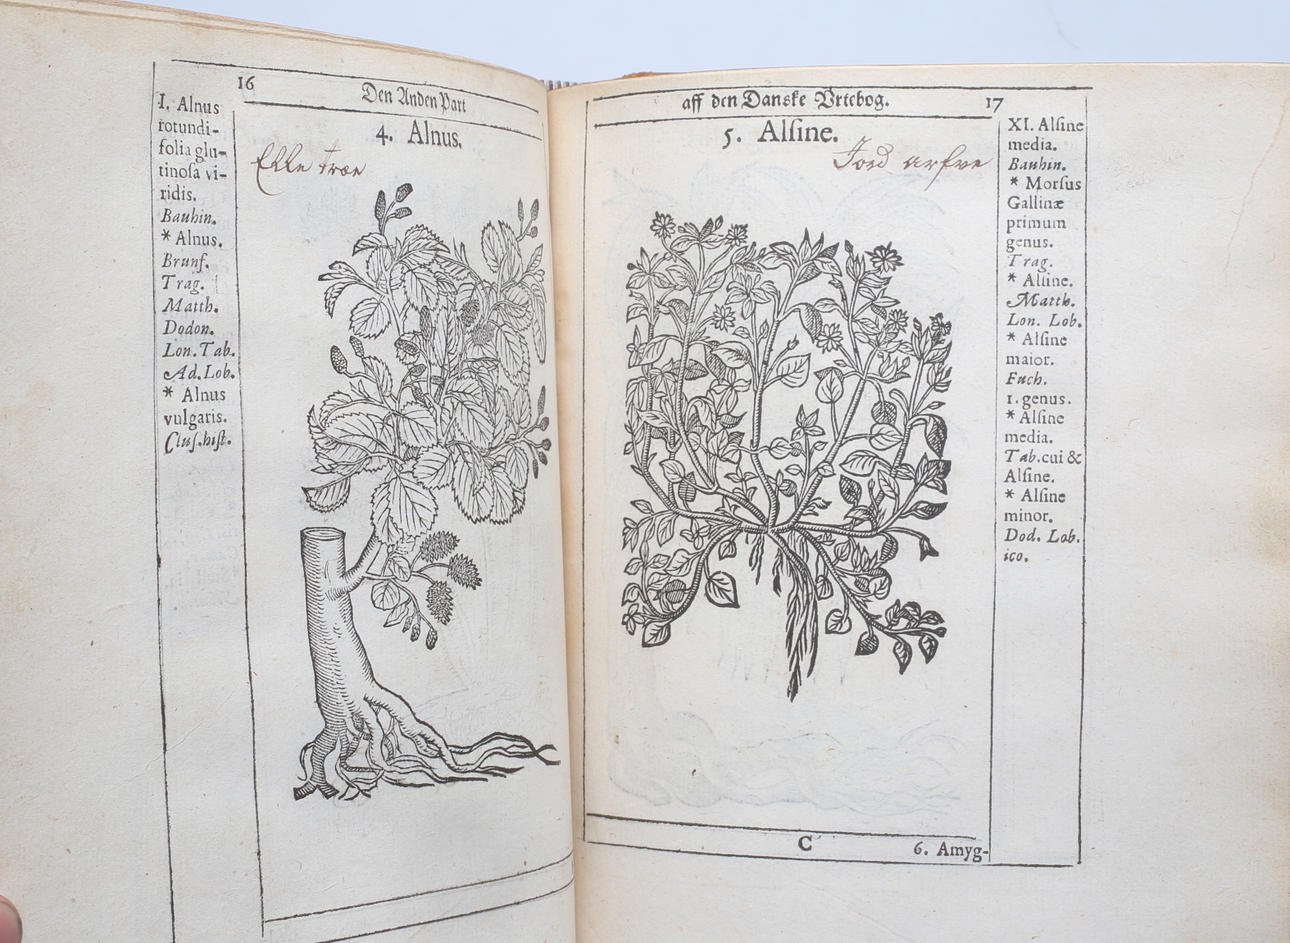 16
Den Anden Part
4. Alnus.
Elle træ
I. Alnus
rotundi-
folia glu-
tinoſa vi-
ridis.
Bauhin.
* Alnus.
Brunf.
Trag.
Matth.
Dodon.
Lon. Tab.
Ad. Lob.
* Alnus
vulgaris.
Cluſ. hiſt.
aff den Danske Vrtebog.
17
5. Alſine.
Jord arfve
XI. Alſine
media.
Bauhin.
* Morſus
Gallinæ
primum
genus.
Trag.
* Alſine.
Matth.
Lon. Lob.
* Alſine
maior.
Fuch.
1. genus.
* Alſine
media.
Tab. cui &
Alſine.
* Alſine
minor.
Dod. Lob.
ico.
C
6. Amyg-